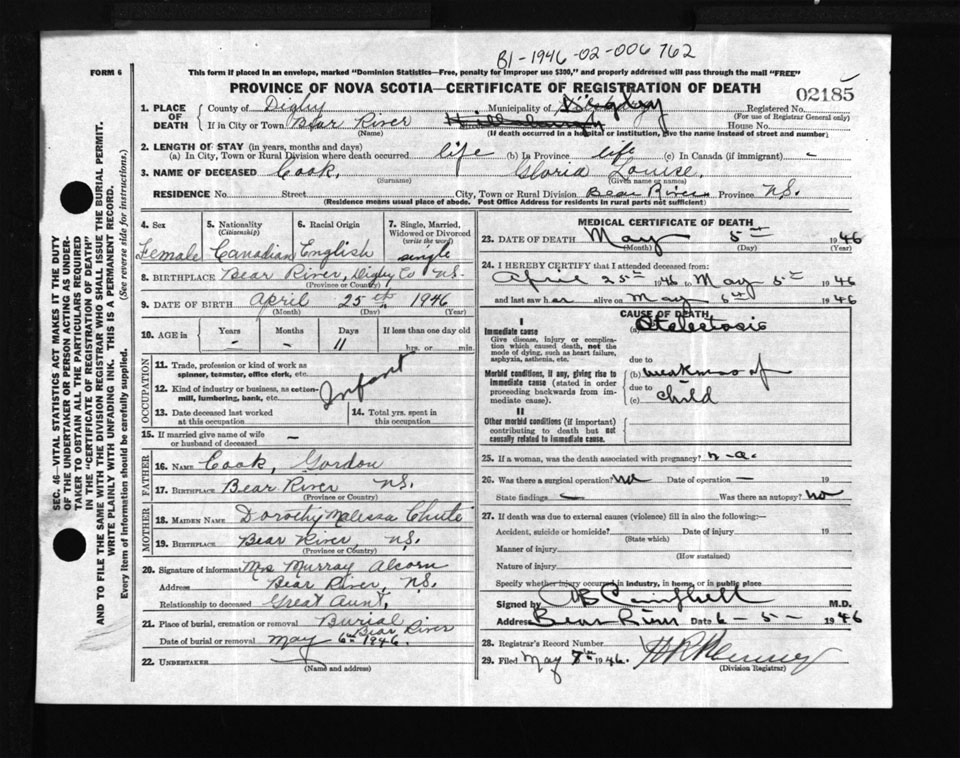 B1-1946-02-006762
FORM 6
This form if placed in an envelope, marked "Dominion Statistics—Free, penalty for improper use $300," and properly addressed will pass through the mail "FREE"
PROVINCE OF NOVA SCOTIA—CERTIFICATE OF REGISTRATION OF DEATH
02185
1. PLACE OF DEATH County of Digby Municipality of Digby Registered No.
(For use of Registrar General only)
If in City or Town Bear River House No.
(Name) (If death occurred in a hospital or institution, give the name instead of street and number)
2. LENGTH OF STAY (in years, months and days)
(a) In City, Town or Rural Division where death occurred life (b) In Province life (c) In Canada (if immigrant) -
3. NAME OF DECEASED Cook, Gloria Louise.
(Surname) (Given name or names)
RESIDENCE No. Street City, Town or Rural Division Bear River Province N.S.
(Residence means usual place of abode. Post Office Address for residents in rural parts not sufficient)
4. Sex 5. Nationality (Citizenship) 6. Racial Origin 7. Single, Married, Widowed or Divorced (write the word)
Female Canadian English single
8. BIRTHPLACE Bear River, Digby Co N.S.
(Province or Country)
9. DATE OF BIRTH April 25th 1946
(Month) (Day) (Year)
10. AGE is Years Months Days If less than one day old
- - 11 hrs. or min.
OCCUPATION
11. Trade, profession or kind of work as spinner, teamster, office clerk, etc.
12. Kind of industry or business, as cotton-mill, lumbering, bank, etc.
Infant
13. Date deceased last worked at this occupation
14. Total yrs. spent in this occupation
15. If married give name of wife or husband of deceased -
FATHER
16. NAME Cook, Gordon
17. BIRTHPLACE Bear River N.S.
(Province or Country)
MOTHER
18. MAIDEN NAME Dorothy Malissa Chute
19. BIRTHPLACE Bear River, N.S.
(Province or Country)
20. Signature of informant Mrs Murray Alcorn
Address Bear River, N.S.
Relationship to deceased Great Aunt,
21. Place of burial, cremation or removal Burial
Bear River
Date of burial or removal May 6th 1946.
22. UNDERTAKER
(Name and address)
MEDICAL CERTIFICATE OF DEATH
23. DATE OF DEATH May 5th 1946
(Month) (Day) (Year)
24. I HEREBY CERTIFY that I attended deceased from:
April 25th 1946 to May 5th 1946
and last saw her alive on May 1946
CAUSE OF DEATH
I
Immediate cause (a)
Give disease, injury or complication which caused death, not the mode of dying, such as heart failure, asphyxia, asthenia, etc.
due to
Morbid conditions, if any, giving rise to immediate cause (stated in order proceeding backwards from immediate cause). (b) weakness of
due to
(c) child
II
Other morbid conditions (if important) contributing to death but not causally related to immediate cause.
25. If a woman, was the death associated with pregnancy? n-a.
26. Was there a surgical operation? No Date of operation - 19
State findings - Was there an autopsy? No
27. If death was due to external causes (violence) fill in also the following:—
Accident, suicide or homicide? Date of injury 19
(State which)
Manner of injury
(How sustained)
Nature of injury
Specify whether injury occurred in industry, in home, or in public place
Signed by AB Campbell M.D.
Address Bear River Date 6-5-1946
28. Registrar's Record Number
29. Filed May 1946.
(Division Registrar)
SEC. 46—VITAL STATISTICS ACT MAKES IT THE DUTY
OF THE UNDERTAKER OR PERSON ACTING AS UNDER-
TAKER TO OBTAIN ALL THE PARTICULARS REQUIRED
IN THE "CERTIFICATE OF REGISTRATION OF DEATH"
AND TO FILE THE SAME WITH THE DIVISION REGISTRAR WHO SHALL ISSUE THE BURIAL PERMIT.
WRITE PLAINLY WITH UNFADING INK. THIS IS A PERMANENT RECORD.
Every item of information should be carefully supplied. (See reverse side for instructions.)